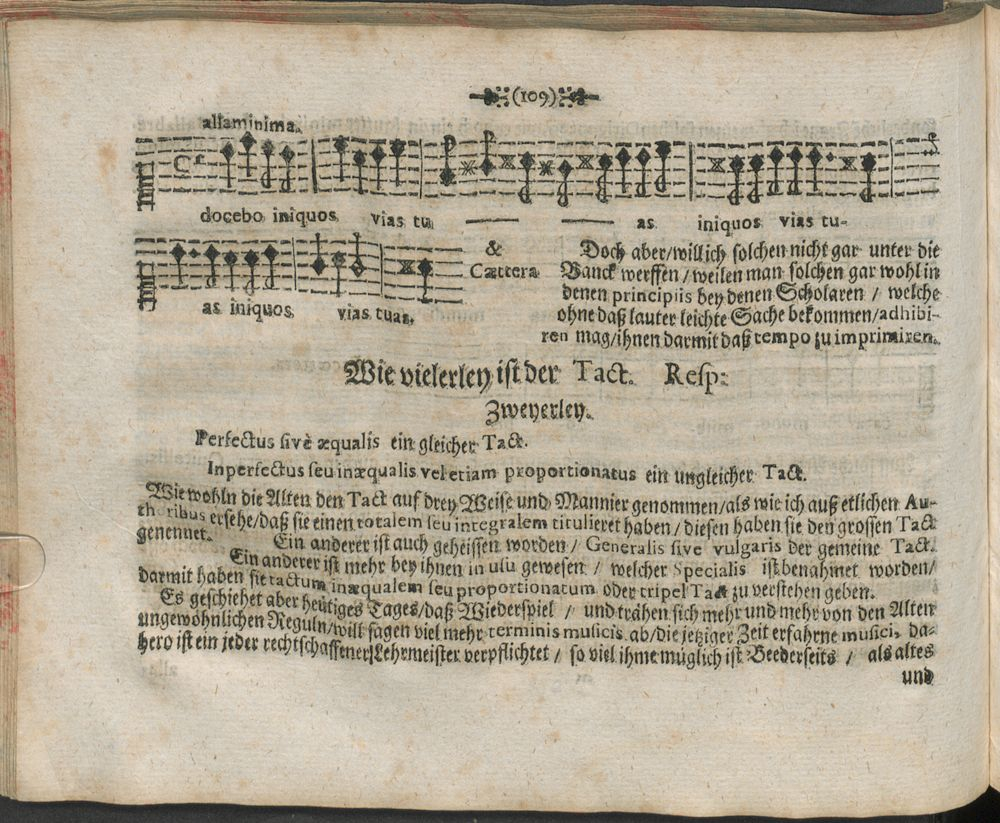 (109)
allaminima.
docebo iniquos vias tu as iniquos vias tu-
as iniquos vias tuas.
&
Cættera
Doch aber/will ich solchen nicht gar unter die
Banck werffen/weilen man solchen gar wohl in
denen principiis bey denen Scholaren / welche
ohne daß lauter leichte Sache bekommen/adhibi-
ren mag/ihnen darmit daß tempo zu imprimiren.
Wie vielerley ist der Tact. Resp:
Zweyerley.
Perfectus sivè æqualis ein gleicher Tact.
Inperfectus seu inæqualis vel etiam proportionatus ein ungleicher Tact.
Wie wohln die Alten den Tact auf drey Weise und Mannier genommen/als wie ich auß etlichen Au-
thoribus ersehe/daß sie einen totalem seu integralem titulieret haben/diesen haben sie den grossen Tact
genennet. Ein anderer ist auch geheissen worden / Generalis sive vulgaris der gemeine Tact.
Ein anderer ist mehr bey ihnen in usu gewesen / welcher Specialis ist benahmet worden/
darmit haben sie tactum inæqualem seu proportionatum oder tripel Tact zu verstehen geben.
Es geschiehet aber heutiges Tages/daß Wiederspiel / und trähen sich mehr und mehr von den Alten
ungewöhnlichen Reguln/will sagen viel mehr terminis musicis ab/die jetziger Zeit erfahrne musici, da-
hero ist ein jeder rechtschaffener Lehrmeister verpflichtet / so viel ihme müglich ist Beederseits / als altes
und